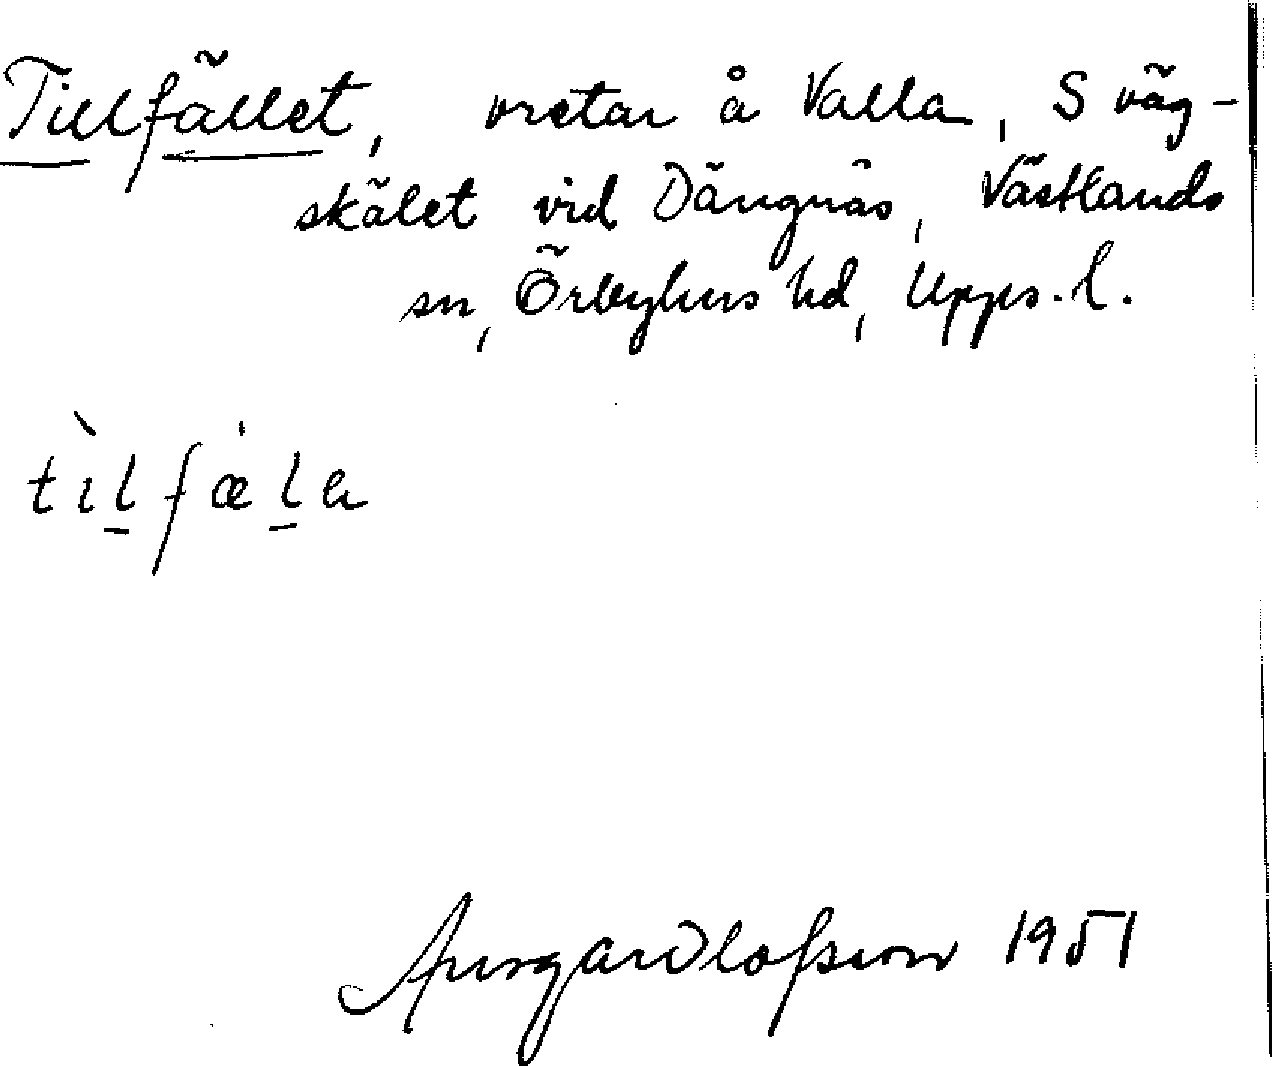 Tillfället, vretar å Valla, S väg-
skälet vid Dängnäs, Västlands
sn, Örbyhus hd, Upps. l.
tìlfæ̇la
Olofsson 1951